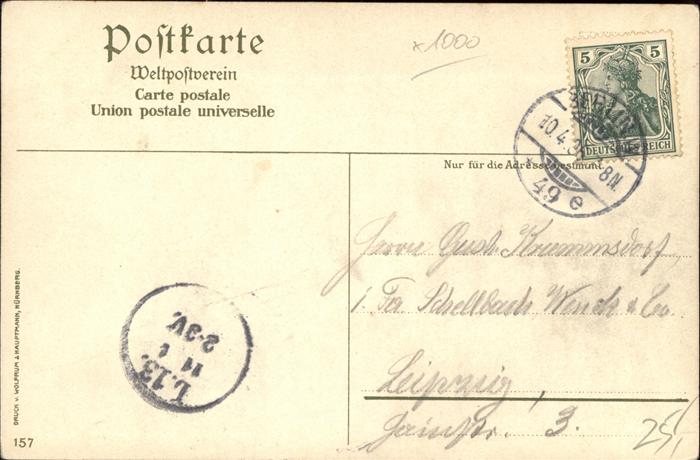 Postkarte
Weltpostverein
Carte postale
Union postale universelle
×1000
5 5
DEUTSCHES REICH
BERLIN
10.4.
8N.
49 e
Nur für die Adresse bestimmt
Herrn Gust. Krummsdorf,
i. Fa. Schellbach Wenck & Co.
Leipzig,
Hainstr. 3.
25,
L.13.
11 4
2-3V.
DRUCK V. WOLFRUM & HAUPTMANN, NÜRNBERG.
157